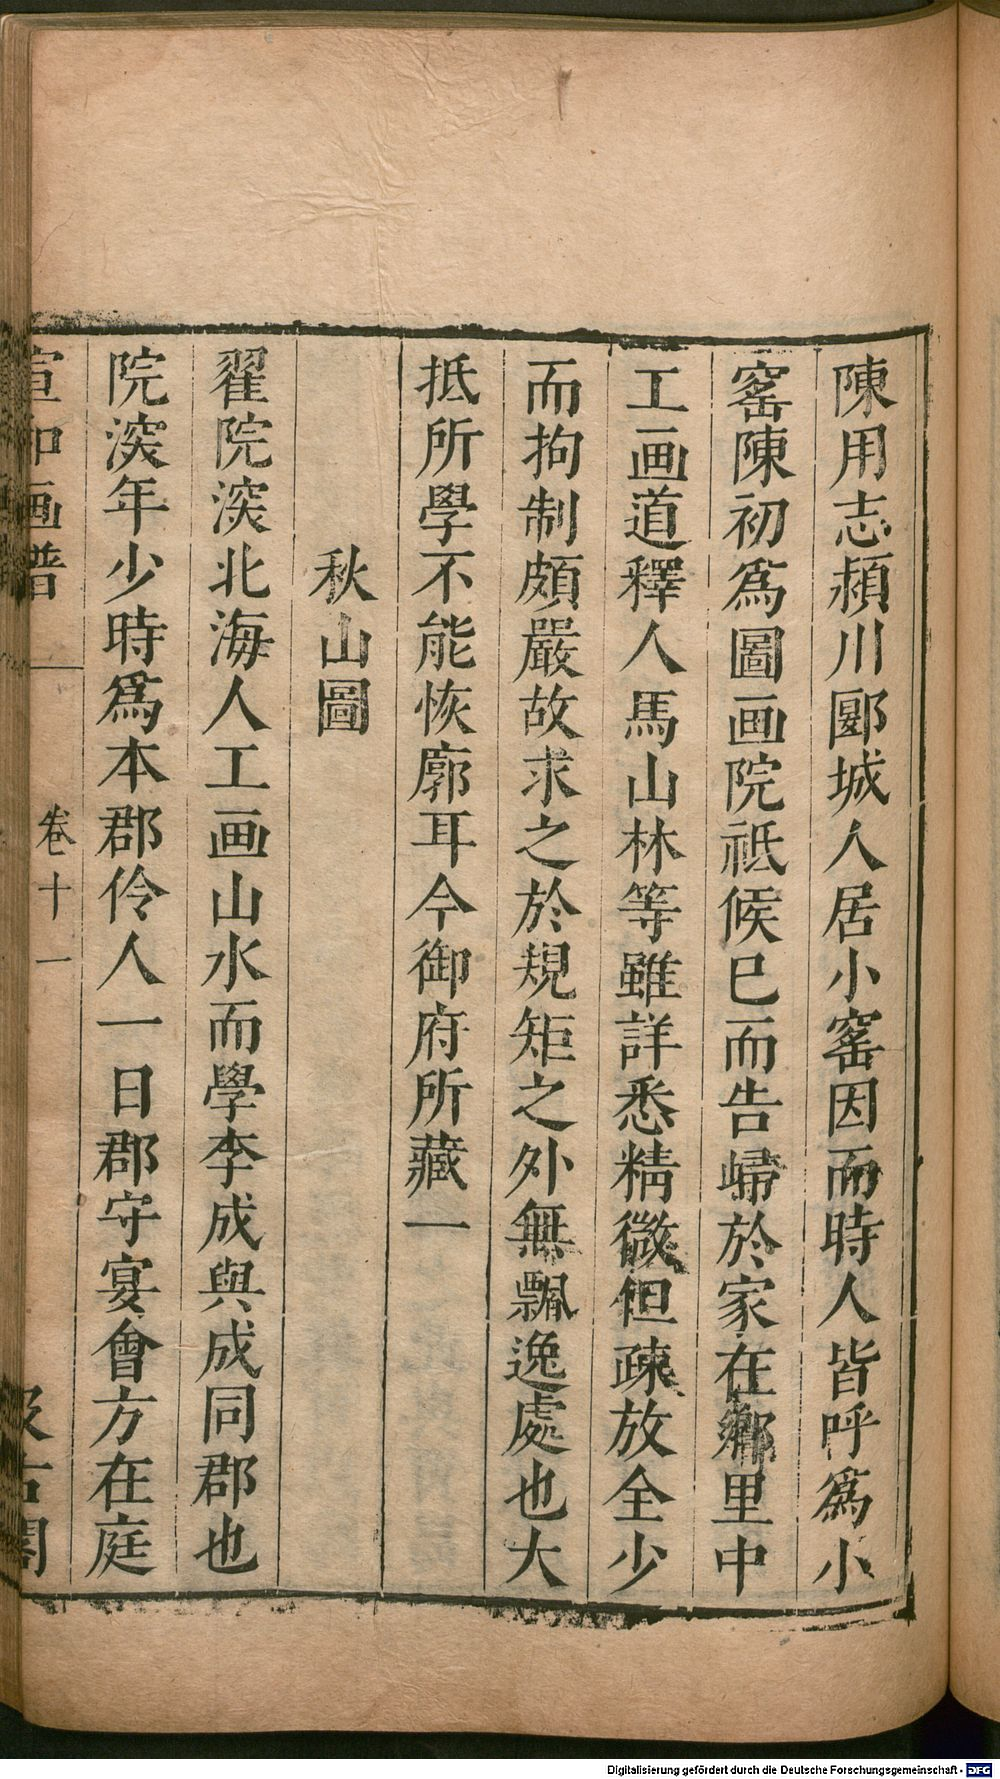 陳用志潁川郾城人居小窰因而時人皆呼爲小
窰陳初爲圖画院祗候已而告歸於家在鄉里中
工画道釋人馬山林等雖詳悉精微但疎放全少
而拘制頗嚴故求之於規矩之外無飄逸處也大
抵所學不能恢廓耳今御府所藏一
秋山圖
翟院深北海人工画山水而學李成與成同郡也
院深年少時爲本郡伶人一日郡守宴會方在庭
宣和画譜 卷十一 汲古閣
Digitalisierung gefördert durch die Deutsche Forschungsgemeinschaft - DFG